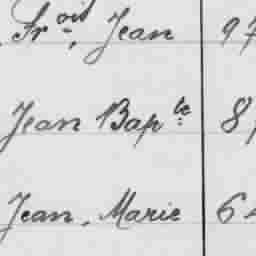 Fr.oit, Jean 97
Jean Bapte 8
Jean, Marie 64